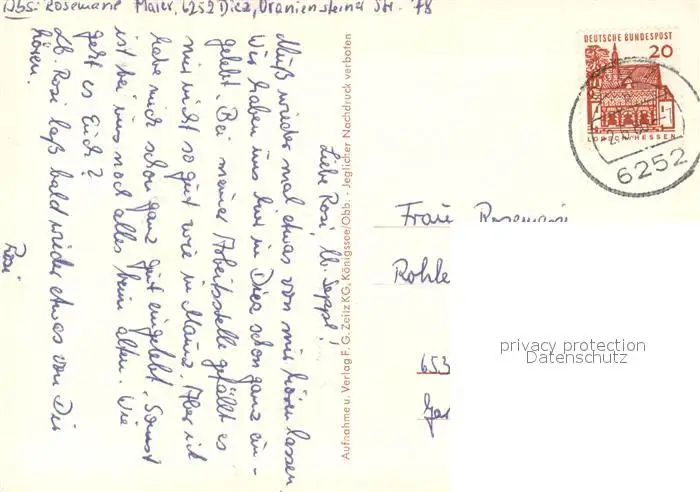 Abs: Rosemarie Maier, 6252 Diez, Oraniensteiner Str. 78
Liebe Rosi, lb. Seppl!
Muß wieder mal etwas von mir hören lassen
Wir haben uns hier in Diez schon ganz ein-
gelebt. Bei meiner Arbeitsstelle gefällt es
mir nicht so gut wie in Mainz. Aber ich
habe mich schon ganz gut eingelebt. Sonst
ist bei uns noch alles beim alten. Wie
geht es Euch?
Lb. Rosi laß bald wieder etwas von Dir
hören.
Rosi
Aufnahme u. Verlag F. G. Zeitz KG, Königssee/Obb. - Jeglicher Nachdruck verboten
DEUTSCHE BUNDESPOST
20
LORSCH/HESSEN
6252
Frau Rosemarie
Rohle
653
privacy protection
Datenschutz